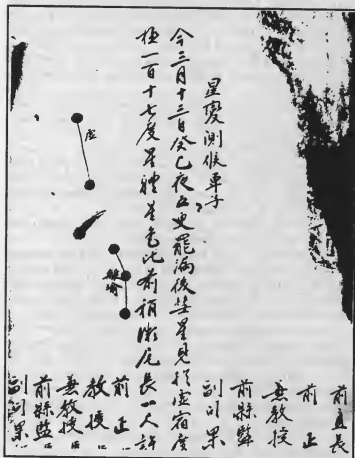 星變測候單子
今三月十三日癸巳夜五更罷漏後彗星見於虛宿度
極一百十七度星體星色比前稍微尾長一尺許
虛
離瑜
前直長
前正
兼教授
前縣監
副司果
前正
教授
兼教授
前縣監
副司果